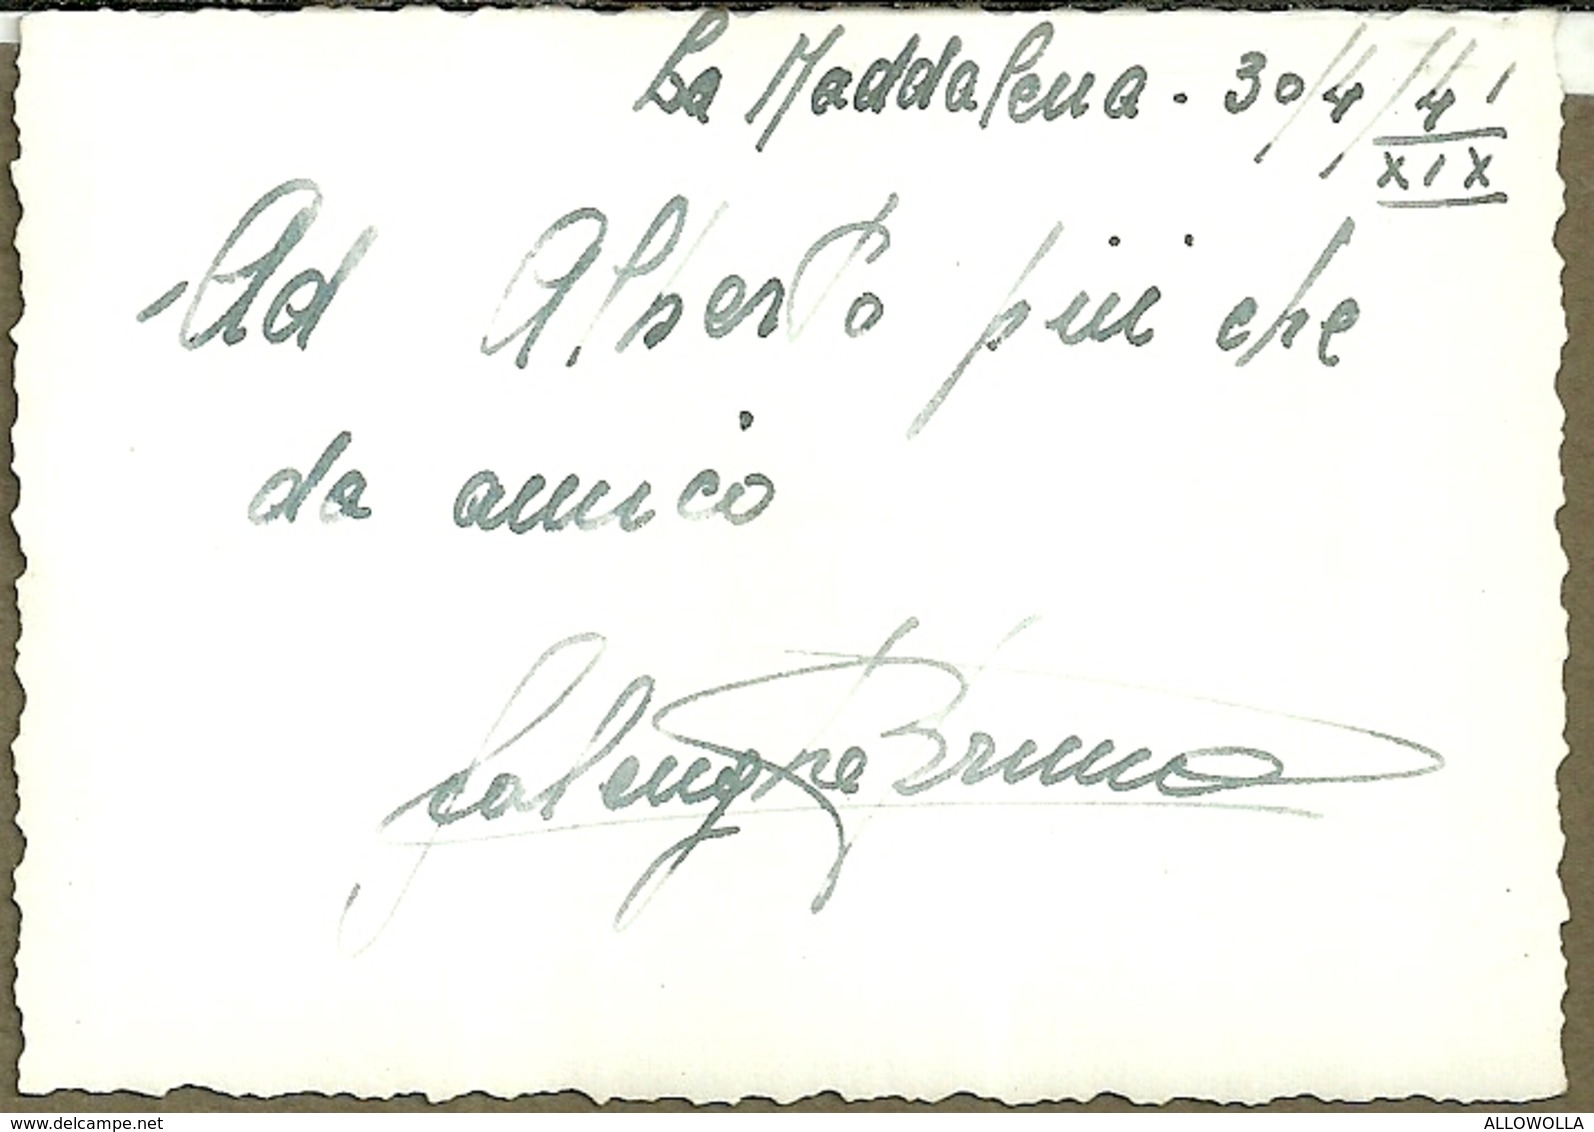 La Maddalena - 30/4/41
XIX
Ad Alberto più che
da amico
Bruno
www.delcampe.net
ALLOWOLLA